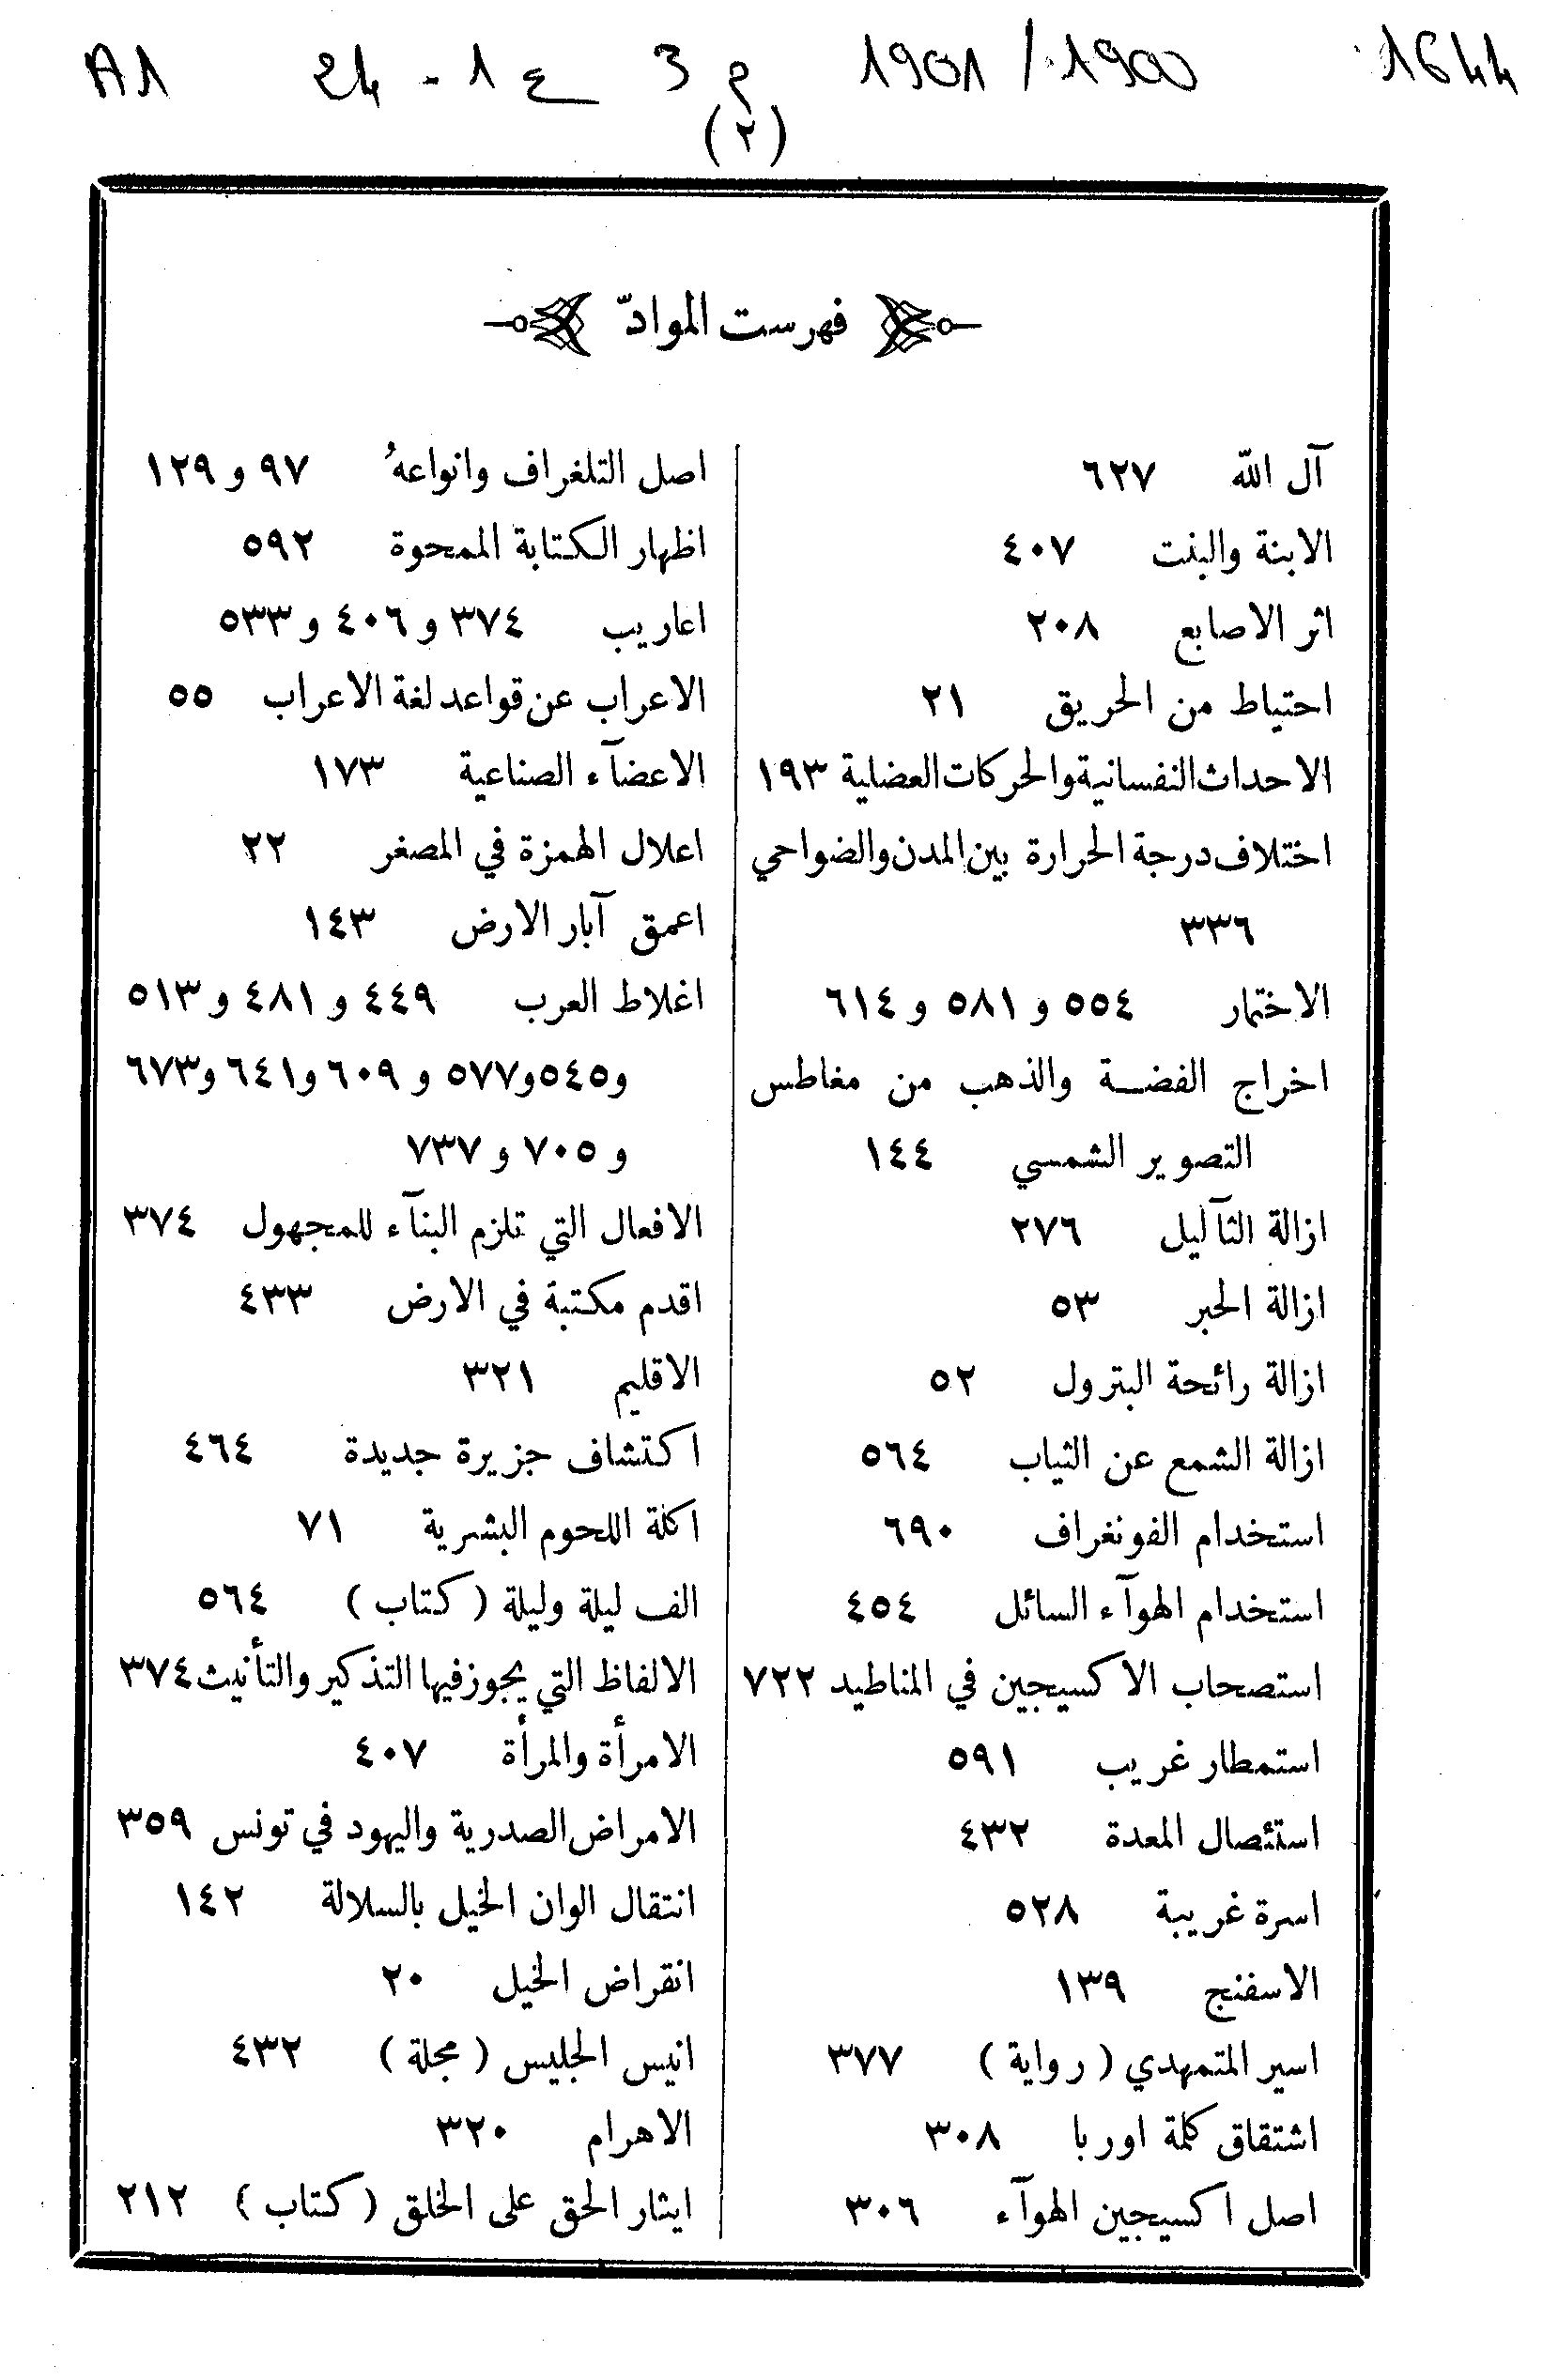 1644 1900/1901 م 3 ع 1 - 24 A1
(٢)
فهرست الموادّ
آل الله ٦٢٧
الابنة والبنت ٤٠٧
اثر الاصابع ٢٠٨
احتياط من الحريق ٢١
الاحداث النفسانية والحركات العضلية ١٩٣
اختلاف درجة الحرارة بين المدن والضواحي
٣٣٦
الاختمار ٥٥٤ و ٥٨١ و ٦١٤
اخراج الفضة والذهب من مغاطس
التصوير الشمسي ١٤٤
ازالة الثآليل ٢٧٦
ازالة الحبر ٥٣
ازالة رائحة البترول ٥٢
ازالة الشمع عن الثياب ٥٦٤
استخدام الفونغراف ٦٩٠
استخدام الهوآء السائل ٤٥٤
استصحاب الاكسيجين في المناطيد ٧٢٢
استمطار غريب ٥٩١
استئصال المعدة ٤٣٢
اسرة غريبة ٥٢٨
الاسفنج ١٣٩
اسير المتمهدي ( رواية ) ٣٧٧
اشتقاق كلمة اوربا ٣٠٨
اصل اكسيجين الهوآء ٣٠٦
اصل التلغراف وانواعهُ ٩٧ و ١٢٩
اظهار الكتابة الممحوة ٥٩٢
اعاريب ٣٧٤ و ٤٠٦ و ٥٣٣
الاعراب عن قواعد لغة الاعراب ٥٥
الاعضآء الصناعية ١٧٣
اعلال الهمزة في المصغر ٢٢
اعمق آبار الارض ١٤٣
اغلاط العرب ٤٤٩ و ٤٨١ و ٥١٣
و٥٤٥ و٥٧٧ و ٦٠٩ و٦٤١ و٦٧٣
و ٧٠٥ و ٧٣٧
الافعال التي تلزم البنآء للمجهول ٣٧٤
اقدم مكتبة في الارض ٤٣٣
الاقليم ٣٢١
اكتشاف جزيرة جديدة ٤٦٤
اكلة اللحوم البشرية ٧١
الف ليلة وليلة ( كتاب ) ٥٦٤
الالفاظ التي يجوز فيها التذكير والتأنيث ٣٧٤
الامرأة والمرأة ٤٠٧
الامراض الصدرية واليهود في تونس ٣٥٩
انتقال الوان الخيل بالسلالة ١٤٢
انقراض الخيل ٢٠
انيس الجليس ( مجلة ) ٤٣٢
الاهرام ٣٢٠
ايثار الحق على الخلق ( كتاب ) ٢١٢